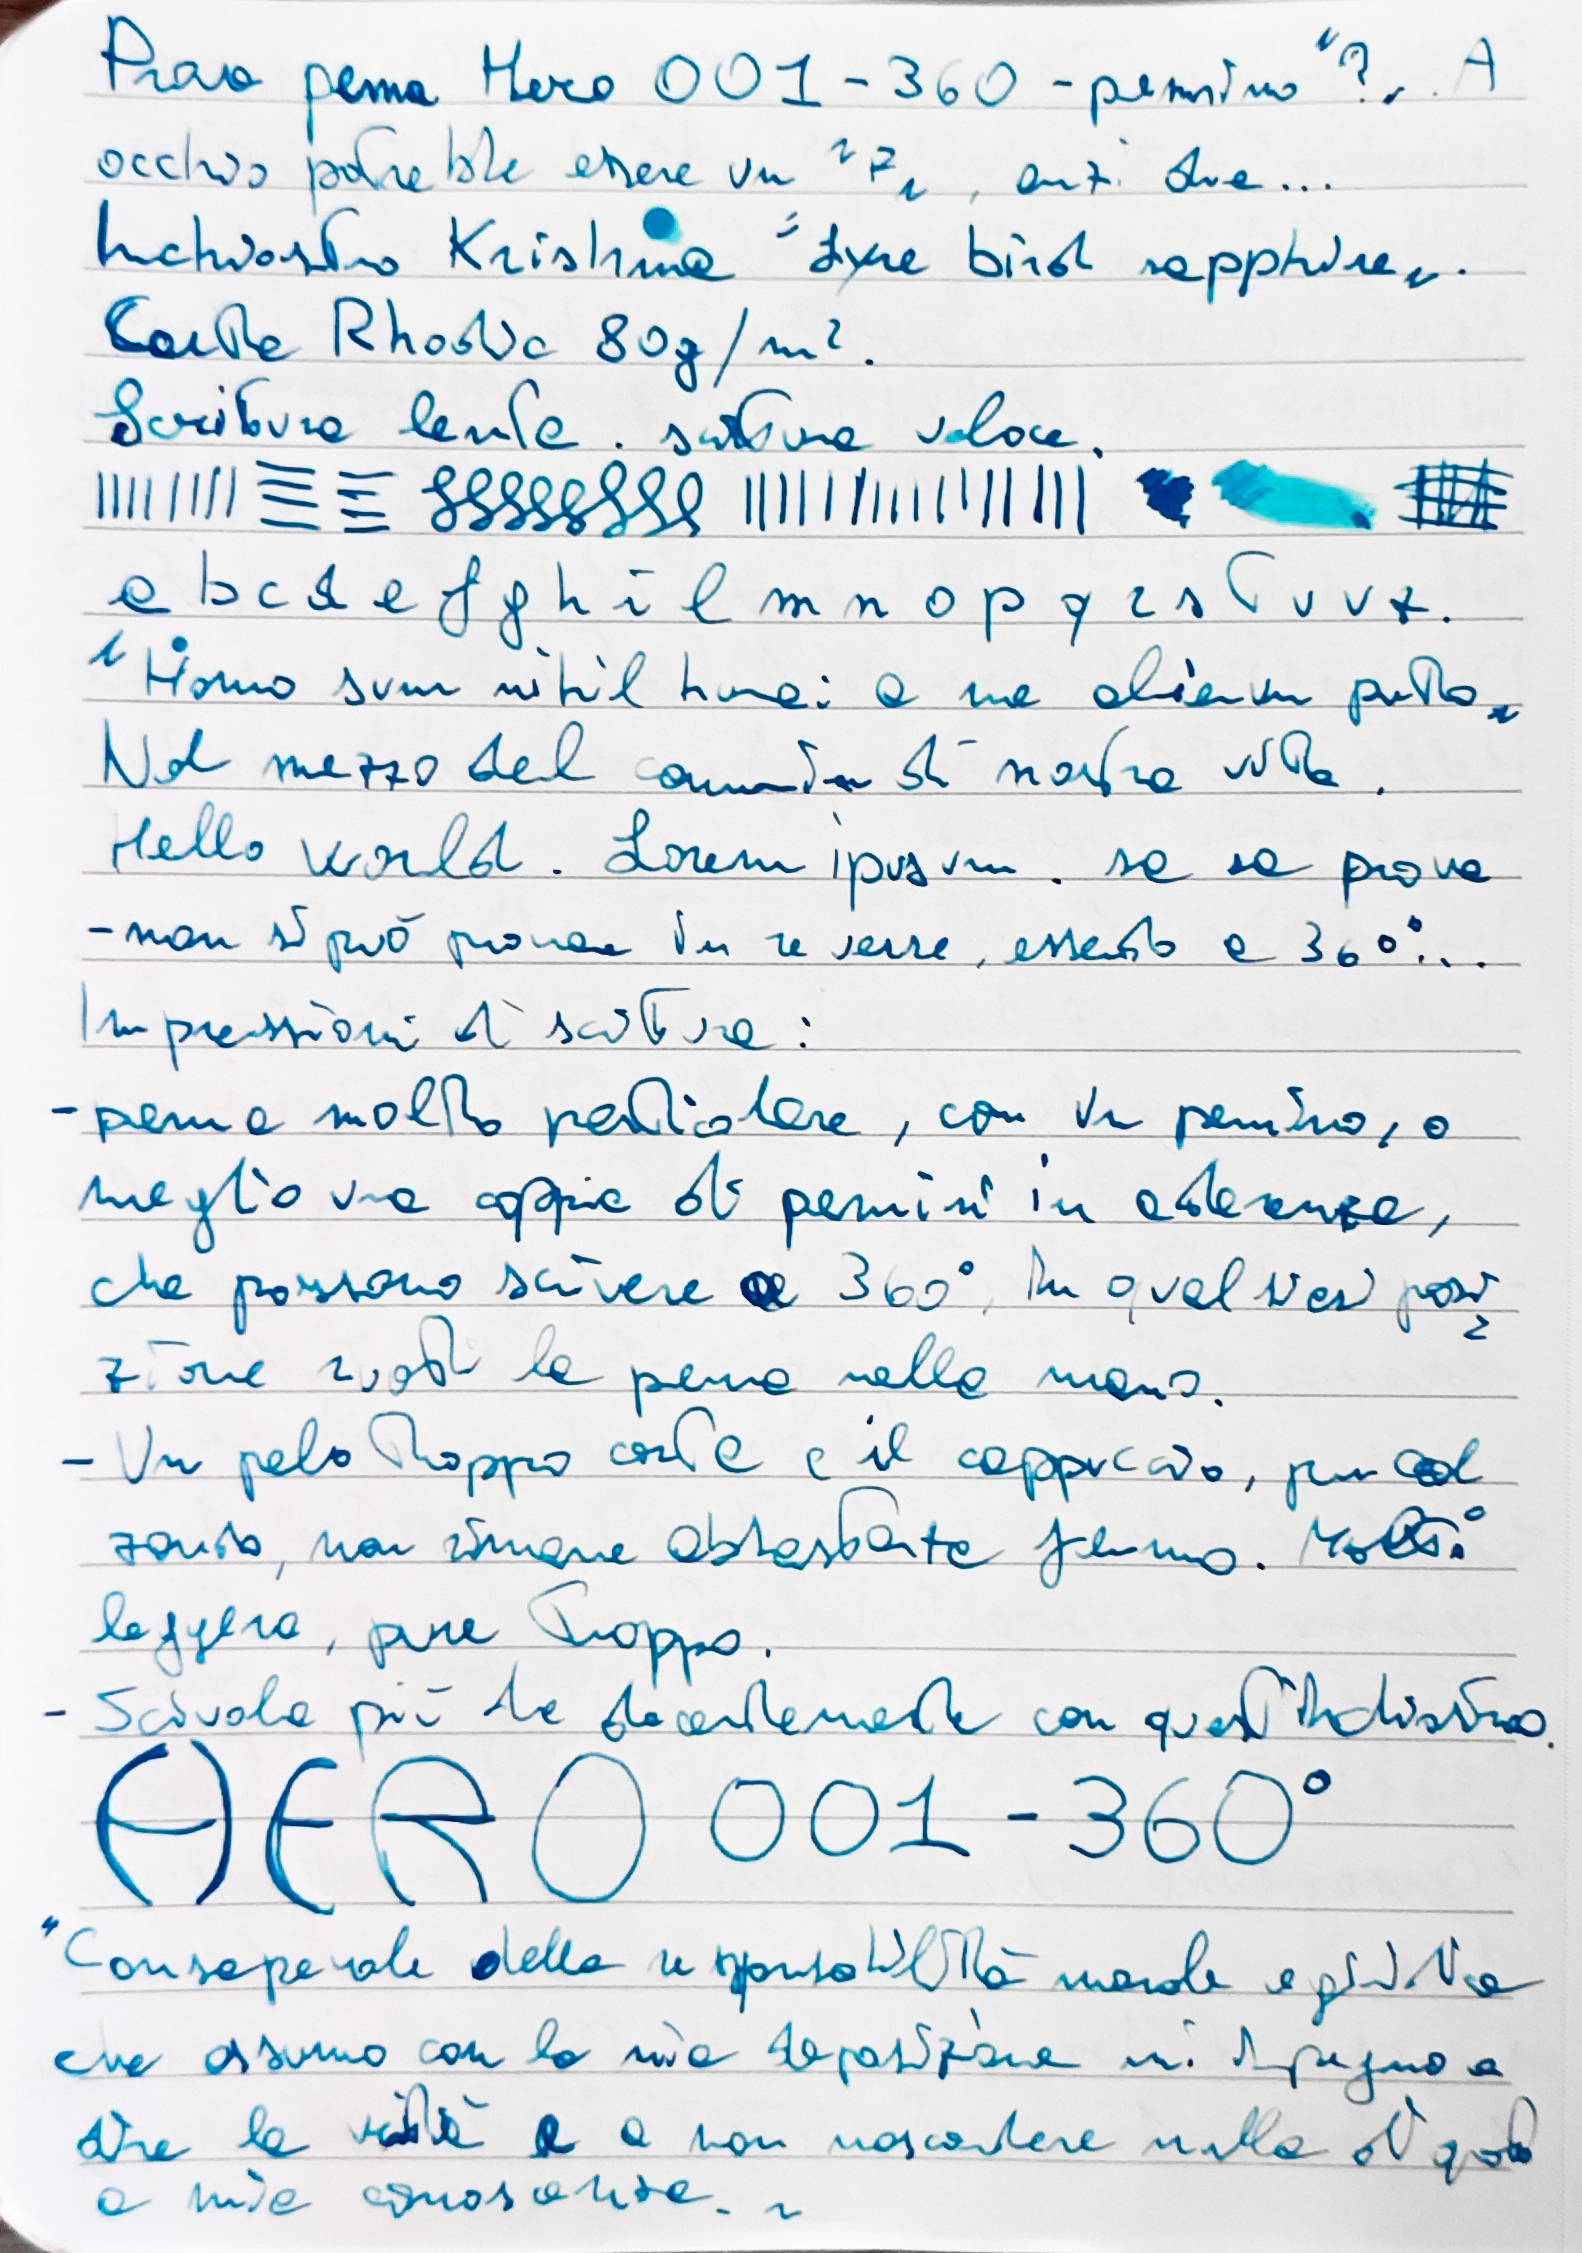 Prova penna Hero 001-360 - pennino "?". A
occhio potrebbe essere un "F", anzi due...
Inchiostro Krishna "Lyre bird sapphire".
Carta Rhodia 80g/m².
Scrittura lenta. scrittura veloce.
a b c d e f g h i l m n o p q r s t u v z.
"Homo sum nihil humani a me alienum puto"
Nel mezzo del cammin di nostra vita.
Hello world. Lorem ipsum. sa sa prova
- non si può provare in reverse, essendo a 360°...
Impressioni di scrittura:
- penna molto particolare, con un pennino, o
meglio una coppia di pennini in aderenza,
che possono scrivere a 360°. In qualsiasi posi
zione ruoti la penna nella mano.
- Un pelo troppo corta e il cappuccio, pur cal
zando, non rimane abbastanza fermo. Molto
leggera, pure troppo.
- Scivola più che decentemente con quest'inchiostro.
HERO 001 - 360°
"Consapevole della responsabilità morale e giuridica
che assumo con la mia deposizione mi impegno a
dire la verità e a non nascondere nulla di quanto
a mia conoscenza."